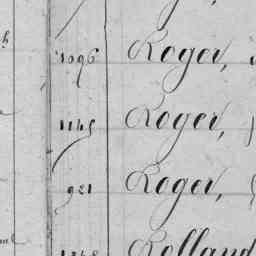 1096 Roger,
1145 Roger,
921 Roger,
Rolland